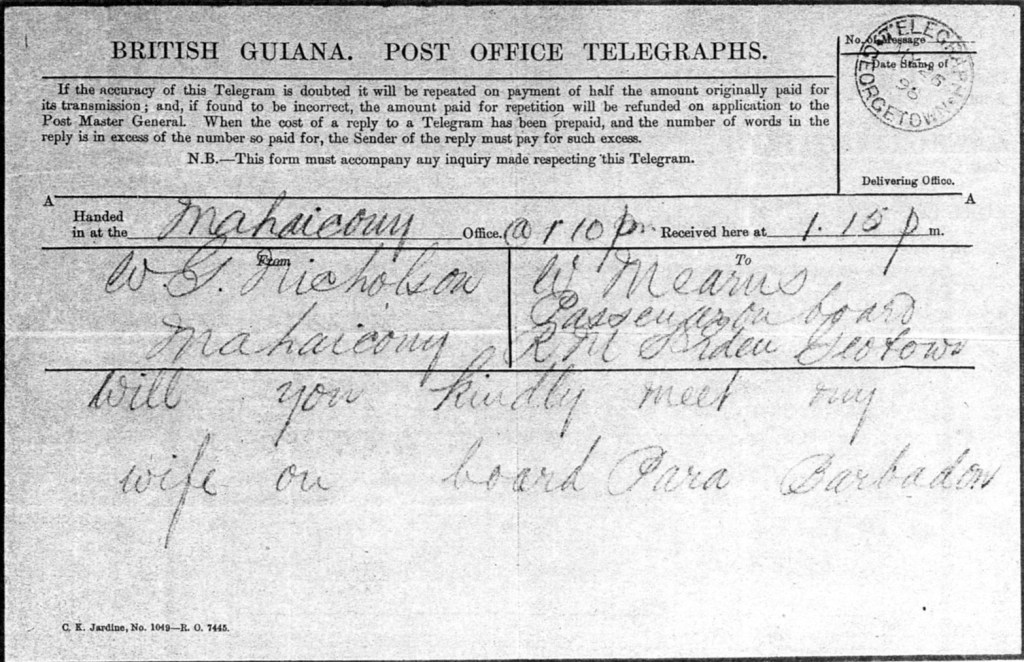 BRITISH GUIANA. POST OFFICE TELEGRAPHS.
If the accuracy of this Telegram is doubted it will be repeated on payment of half the amount originally paid for
its transmission; and, if found to be incorrect, the amount paid for repetition will be refunded on application to the
Post Master General. When the cost of a reply to a Telegram has been prepaid, and the number of words in the
reply is in excess of the number so paid for, the Sender of the reply must pay for such excess.
N.B.—This form must accompany any inquiry made respecting this Telegram.
No. of Message
Date Stamp of
TELEGRAPH
GEORGETOWN
Delivering Office.
A A
Handed
in at the Mahaicony Office. @ 1 10 pm Received here at 1.15 p m.
From
W G. Nicholson
Mahaicony
To
W Mearns
Passenger on board
R M Geotown
Will you kindly meet my
wife on board Para Barbados
C. K. Jardine, No. 1049—R. O. 7445.